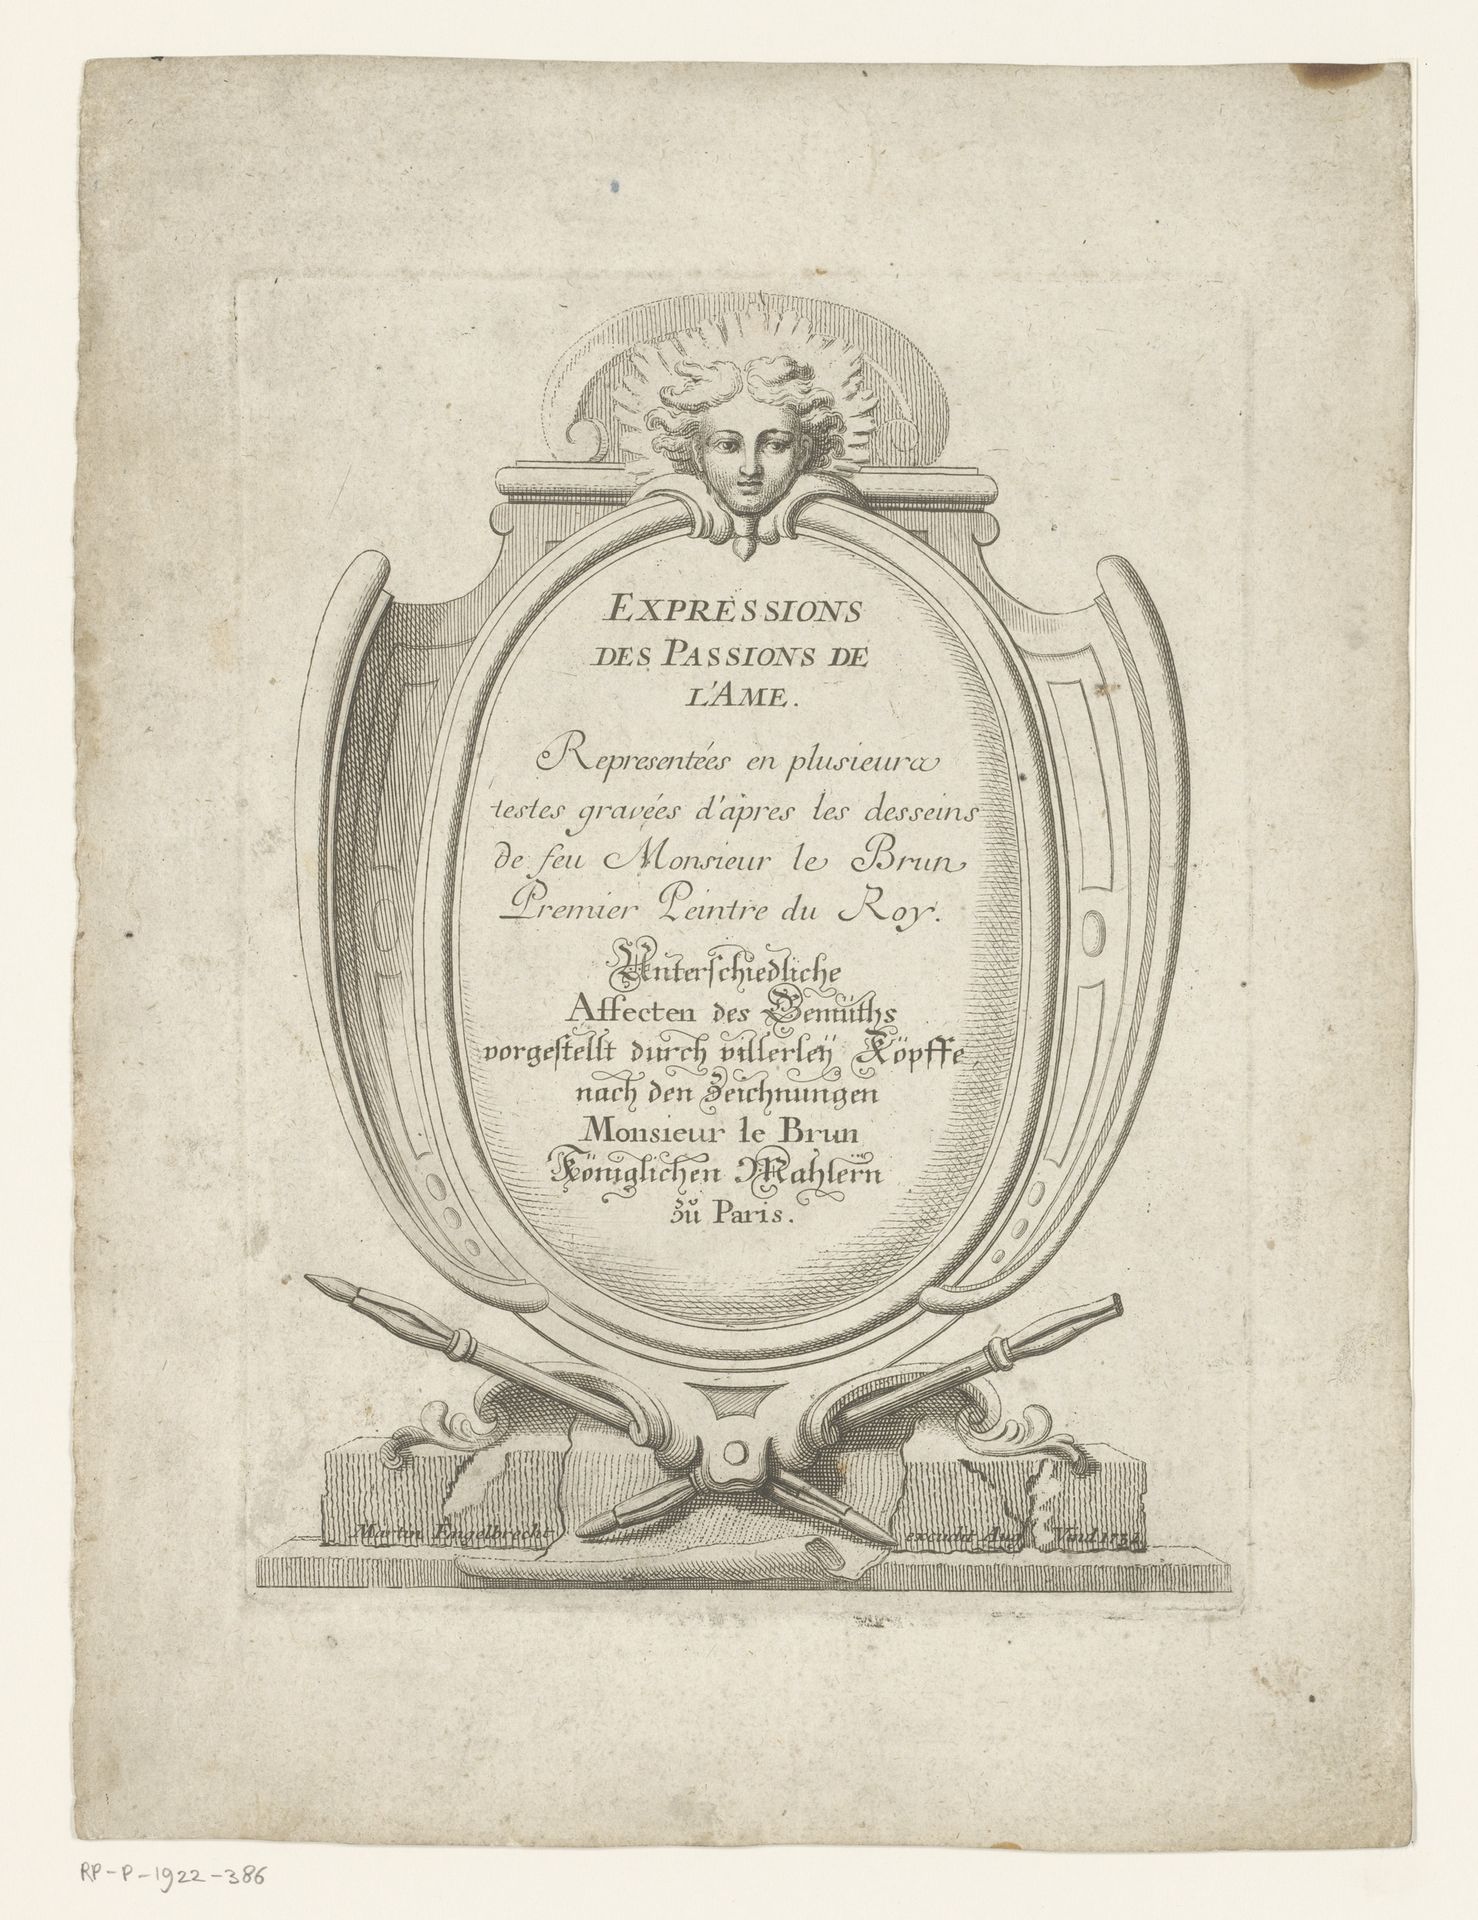 EXPRESSIONS
DES PASSIONS DE
L'AME.
Representées en plusieurs
testes gravées d'apres les desseins
de feu Monsieur le Brun
Premier Peintre du Roy.
Unterschiedliche
Affecten des Gemüths
vorgestellt durch villerleÿ Köpffe,
nach den Zeichnungen
Monsieur le Brun
Königlichen Mahlern
zŭ Paris.
Martin Engelbrecht excudit Aug. Vind.
RP-P-1922-386